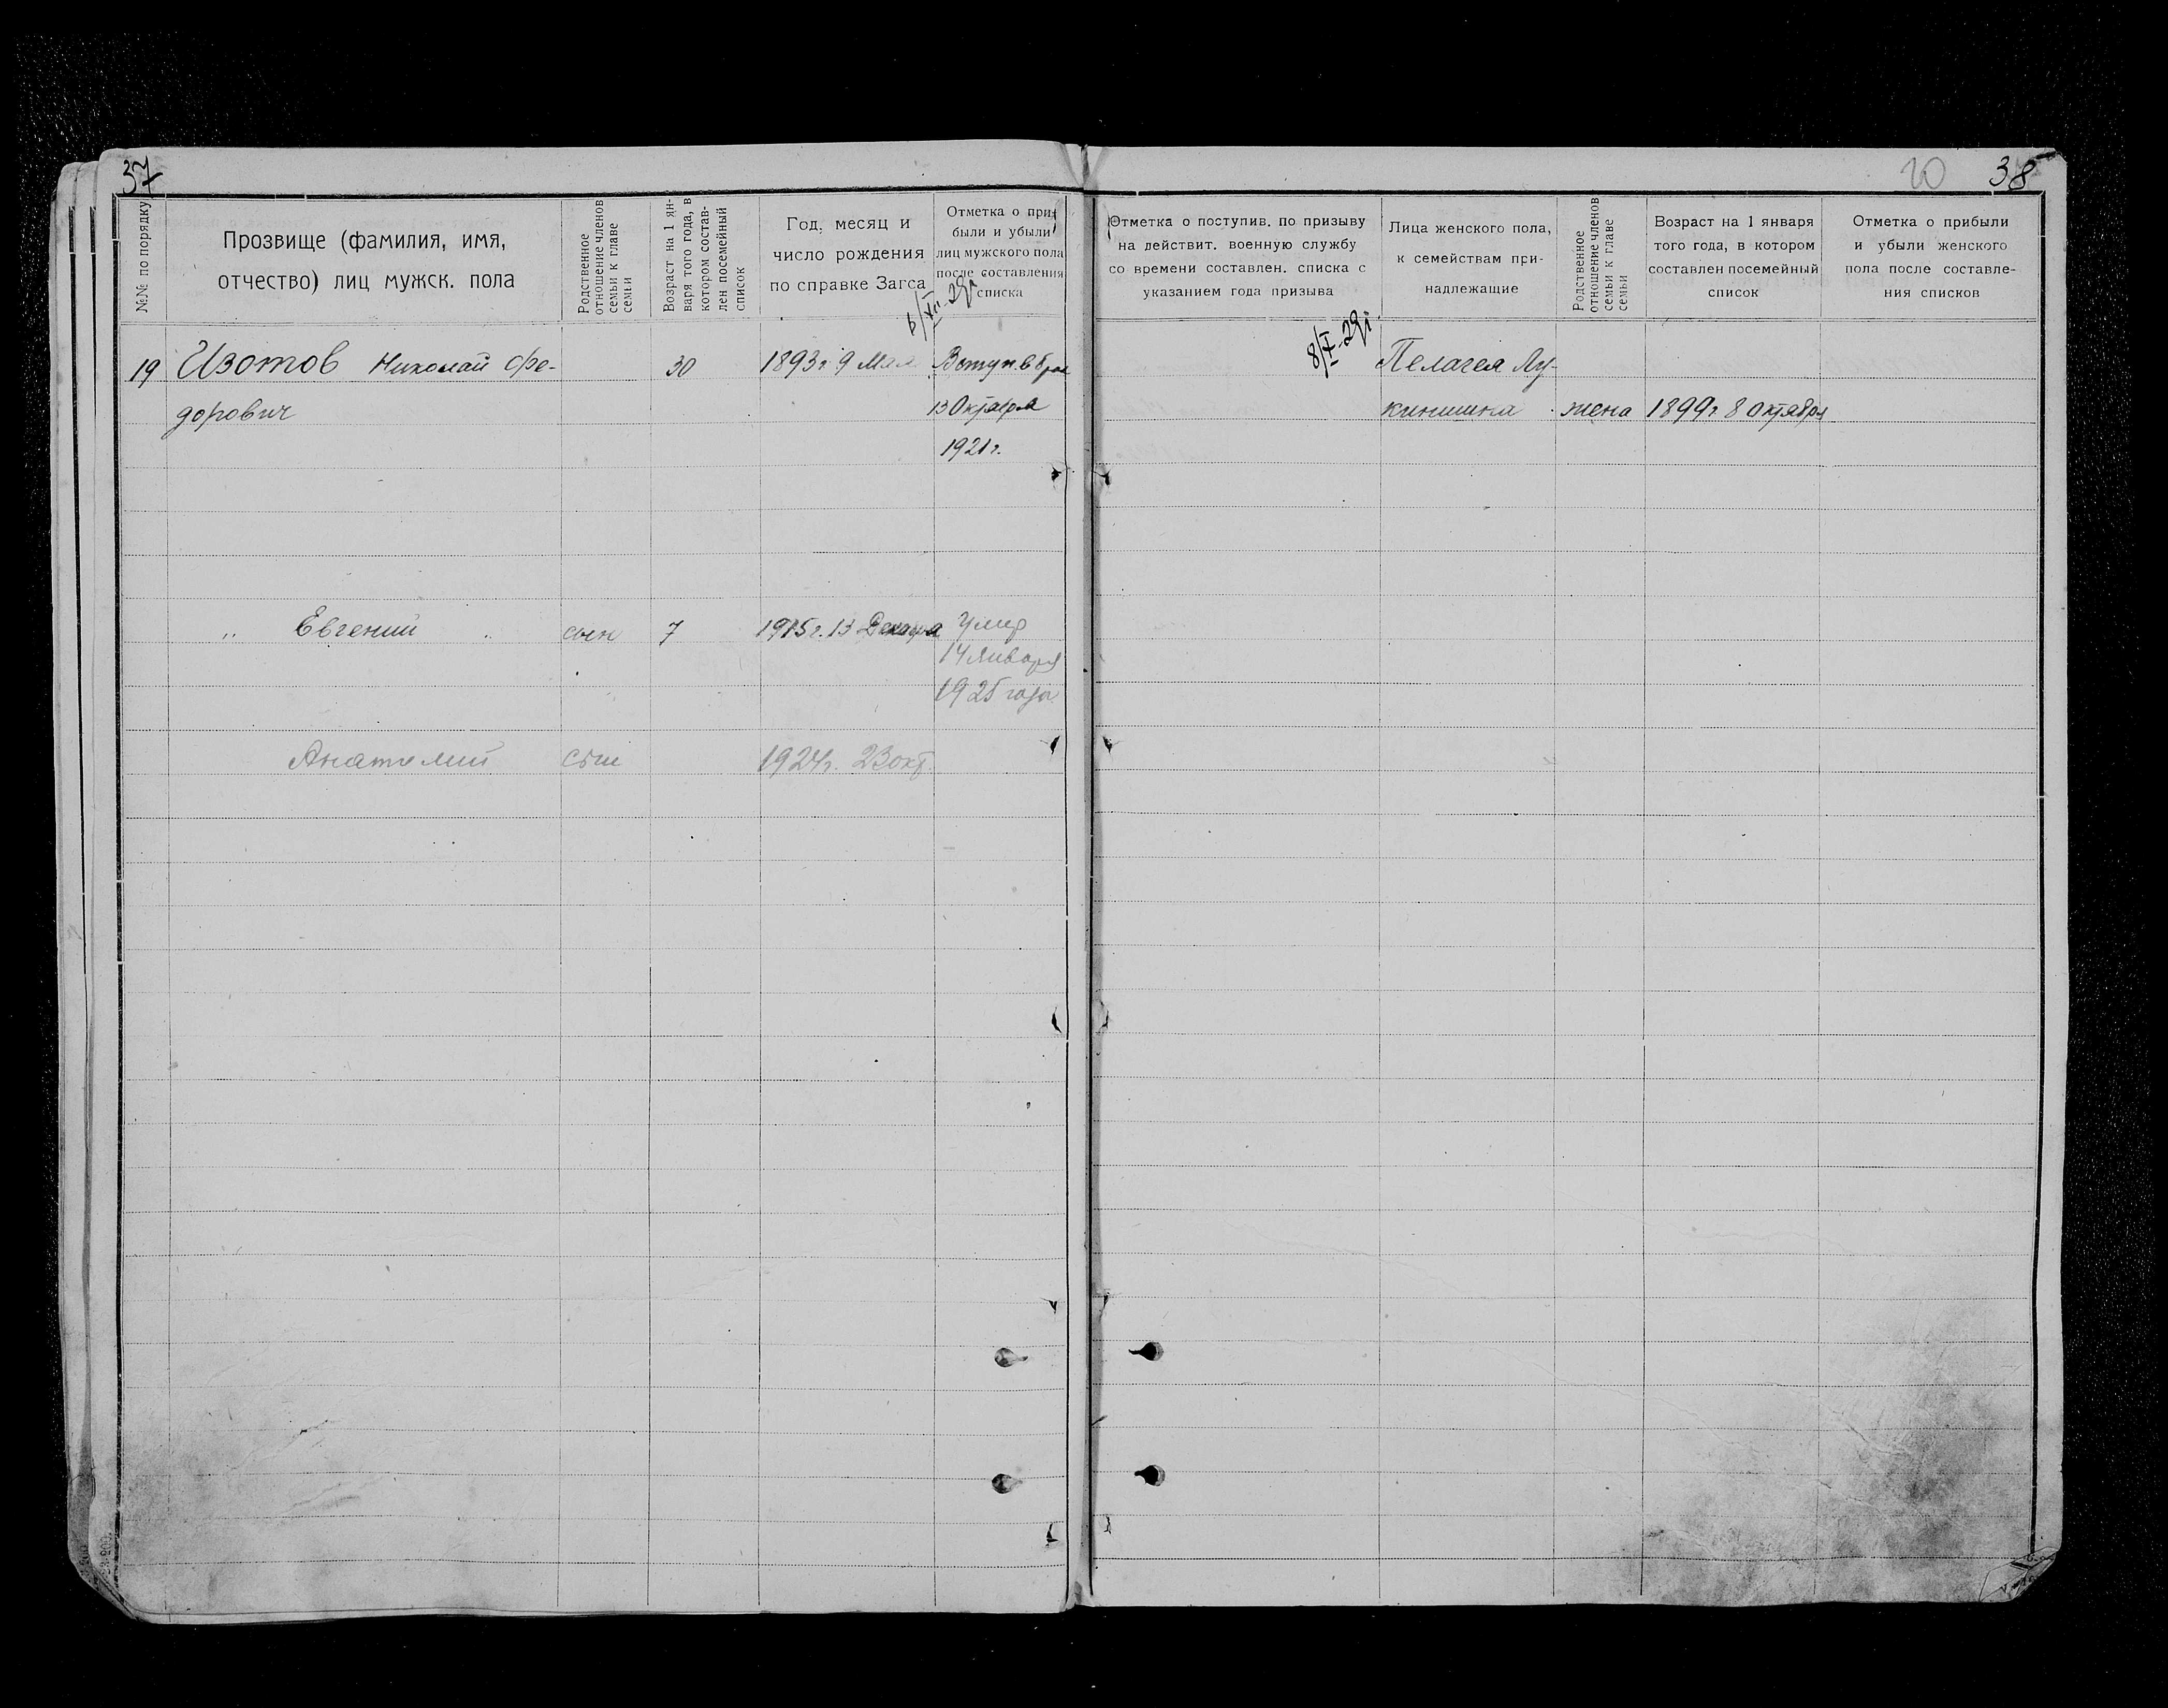 37
№№ по порядку
Прозвище (фамилия, имя,
отчество) лиц мужск. пола
Родственное
отношение членов
семьи к главе
семьи
Возраст на 1 ян-
варя того года, в
котором состав-
лен посемейный
список
Год, месяц и
число рождения
по справке Загса
Отметка о при-
были и убыли
лиц мужского пола
после составления
списка
19 Изотов Николай Фе- 30 1893 г. 9 Мая Вступ. в брак
дорович 13 Октября
1921 г.
„ Евгений „ сын 7 1915 г. 13 Декабря Умер
14 Января
1925 года
Анатолий сын 1924 г. 23 окт.
20 38
Отметка о поступив. по призыву
на действит. военную службу
со времени составлен. списка с
указанием года призыва
Лица женского пола,
к семействам при-
надлежащие
Родственное
отношение членов
семьи к главе
семьи
Возраст на 1 января
того года, в котором
составлен посемейный
список
Отметка о прибыли
и убыли женского
пола после составле-
ния списков
Пелагея Лу-
кинишна жена 1899 г. 8 Октября